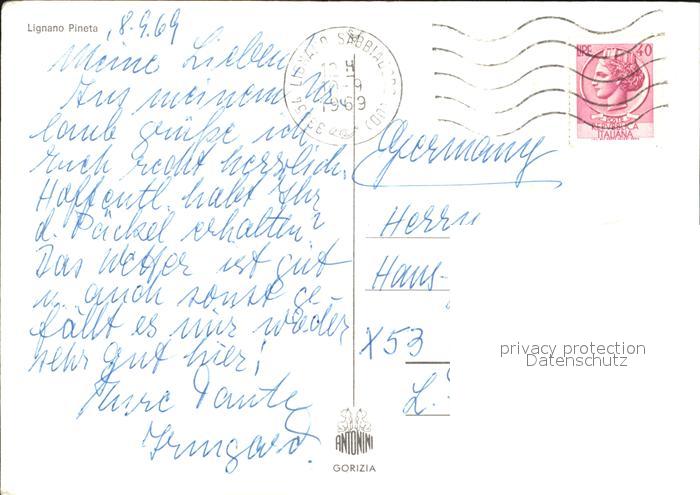 Lignano Pineta
8.9.69
Meine Lieben!
Aus meinem Ur
laub grüße ich
Euch recht herzlich.
Hoffentl. habt Ihr
d. Päckel erhalten?
Das Wetter ist gut
u. auch sonst ge-
fällt es mir wieder
sehr gut hier!
Eure Tante
Irmgard.
LIGNANO SABBIADORO (UD)
1969
LIRE 40
POSTE
REPVBBLICA
ITALIANA
Germany
Herrn
Hans-
X53
L.
privacy protection
Datenschutz
ANTONINI
GORIZIA